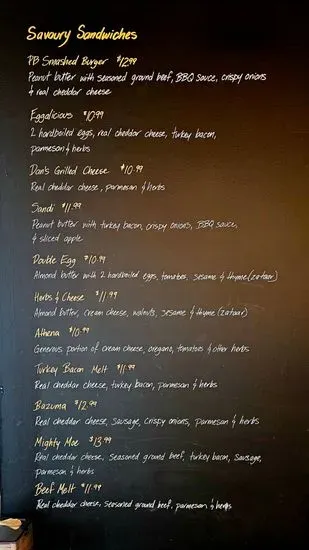 Savoury Sandwiches
PB Smashed Burger $12.99
Peanut butter with seasoned ground beef, BBQ sauce, crispy onions
& real cheddar cheese
Eggalicious $10.99
2 hardboiled eggs, real cheddar cheese, turkey bacon,
parmesan & herbs
Dan's Grilled Cheese $10.99
Real cheddar cheese, parmesan & herbs
Sandi $11.99
Peanut butter with turkey bacon, crispy onions, BBQ sauce,
& sliced apple
Double Egg $10.99
Almond butter with 2 hardboiled eggs, tomatoes, sesame & thyme (zataar)
Herbs & Cheese $11.99
Almond butter, cream cheese, walnuts, sesame & thyme (zataar)
Athena $10.99
Generous portion of cream cheese, oregano, tomatoes & other herbs
Turkey Bacon Melt $11.99
Real cheddar cheese, turkey bacon, parmesan & herbs
Bazuma $12.99
Real cheddar cheese, sausage, crispy onions, parmesan & herbs
Mighty Moe $13.99
Real cheddar cheese, seasoned ground beef, turkey bacon, sausage,
parmesan & herbs
Beef Melt $11.99
Real cheddar cheese, seasoned ground beef, parmesan & herbs